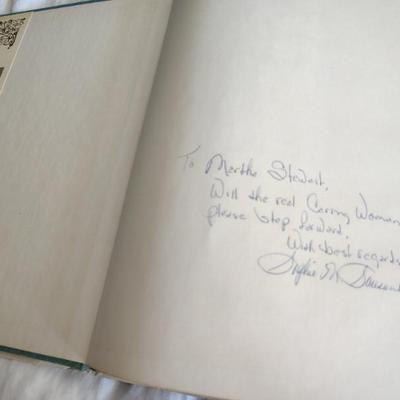 To Martha Stewart,
Will the real Caring Woman
please step forward.
With best regards
Sophie